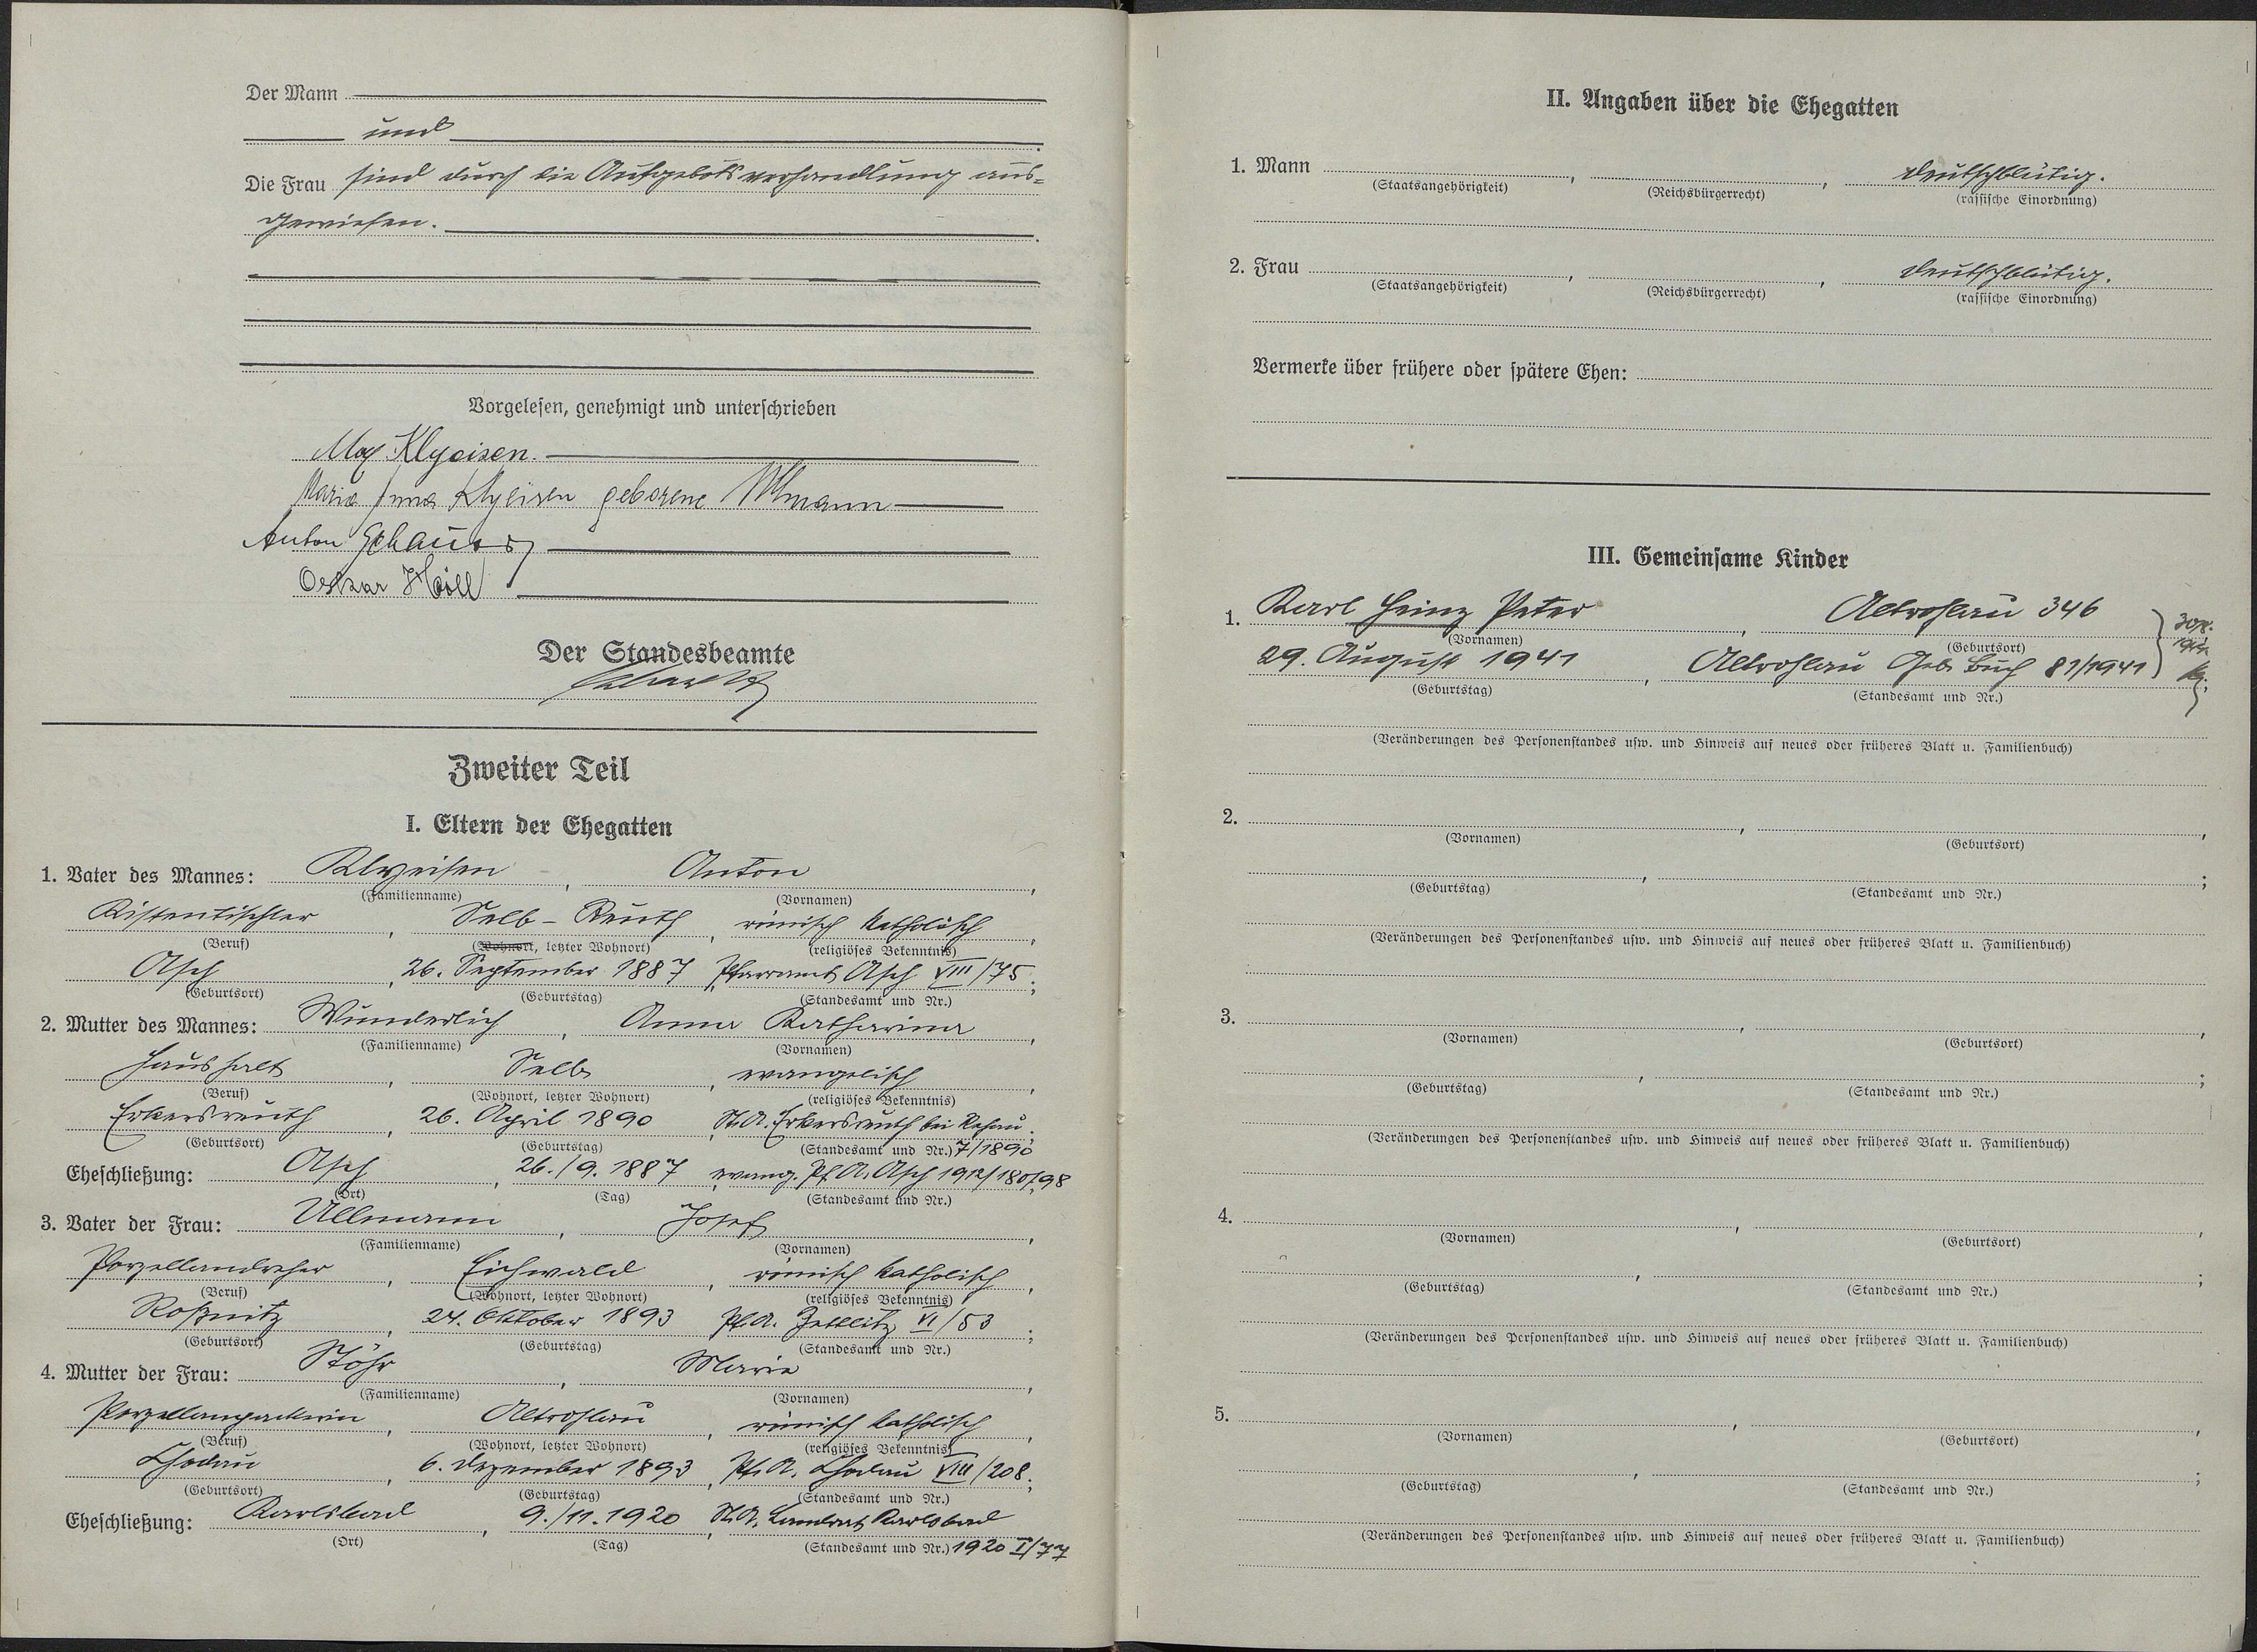 Der Mann
und
Die Frau sind durch die Aufgebotsverhandlung aus=
gewiesen.
Vorgelesen, genehmigt und unterschrieben
Max Klyeisen.
Maria Anna Klyeisen geborene Ullmann
Anton
Oskar Höll
Der Standesbeamte
Zweiter Teil
I. Eltern der Ehegatten
1. Vater des Mannes: Klyeisen, Anton,
(Familienname) (Vornamen)
Kistentischler, Selb-Reuth, römisch katholisch,
(Beruf) (Wohnort, letzter Wohnort) (religiöses Bekenntnis)
Asch, 26. September 1887, Pfarramt Asch VIII/75;
(Geburtsort) (Geburtstag) (Standesamt und Nr.)
2. Mutter des Mannes: Wunderlich, Anna Katharina,
(Familienname) (Vornamen)
Haushalt, Selb, evangelisch,
(Beruf) (Wohnort, letzter Wohnort) (religiöses Bekenntnis)
Erkersreuth, 26. April 1890, St.A. Erkersreuth bei Rehau;
(Geburtsort) (Geburtstag) (Standesamt und Nr.) 7/1890
Eheschließung: Asch, 26./9. 1887, evang. Pf.A. Asch 1912/180/98
(Ort) (Tag) (Standesamt und Nr.)
3. Vater der Frau: Ullmann, Josef,
(Familienname) (Vornamen)
Porzellandreher, Eichwald, römisch katholisch,
(Beruf) (Wohnort, letzter Wohnort) (religiöses Bekenntnis)
Roßnitz, 24. Oktober 1893 Pf.A. Zettlitz VI/53;
(Geburtsort) (Geburtstag) (Standesamt und Nr.)
4. Mutter der Frau: Stöhr, Marie,
(Familienname) (Vornamen)
Porzellanpackerin, Altrohlau, römisch katholisch,
(Beruf) (Wohnort, letzter Wohnort) (religiöses Bekenntnis)
Chodau, 6. Dezember 1893, Pf.A. Chodau VIII/208;
(Geburtsort) (Geburtstag) (Standesamt und Nr.)
Eheschließung: Karlsbad, 9./11. 1920, St.A. Landrat Karlsbad
(Ort) (Tag) (Standesamt und Nr.) 1920 I/77
II. Angaben über die Ehegatten
1. Mann , , deutschblütig.
(Staatsangehörigkeit) (Reichsbürgerrecht) (rassische Einordnung)
2. Frau , , deutschblütig.
(Staatsangehörigkeit) (Reichsbürgerrecht) (rassische Einordnung)
Vermerke über frühere oder spätere Ehen:
III. Gemeinsame Kinder
1. Karl Heinz Peter, Altrohlau 346
(Vornamen) (Geburtsort)
29. August 1941, Altrohlau Geb. Buch 81/1941
(Geburtstag) (Standesamt und Nr.)
(Veränderungen des Personenstandes usw. und Hinweis auf neues oder früheres Blatt u. Familienbuch)
2. , ,
(Vornamen) (Geburtsort)
, ;
(Geburtstag) (Standesamt und Nr.)
(Veränderungen des Personenstandes usw. und Hinweis auf neues oder früheres Blatt u. Familienbuch)
3. , ,
(Vornamen) (Geburtsort)
, ;
(Geburtstag) (Standesamt und Nr.)
(Veränderungen des Personenstandes usw. und Hinweis auf neues oder früheres Blatt u. Familienbuch)
4. , ,
(Vornamen) (Geburtsort)
, ;
(Geburtstag) (Standesamt und Nr.)
(Veränderungen des Personenstandes usw. und Hinweis auf neues oder früheres Blatt u. Familienbuch)
5. , ,
(Vornamen) (Geburtsort)
, ;
(Geburtstag) (Standesamt und Nr.)
(Veränderungen des Personenstandes usw. und Hinweis auf neues oder früheres Blatt u. Familienbuch)